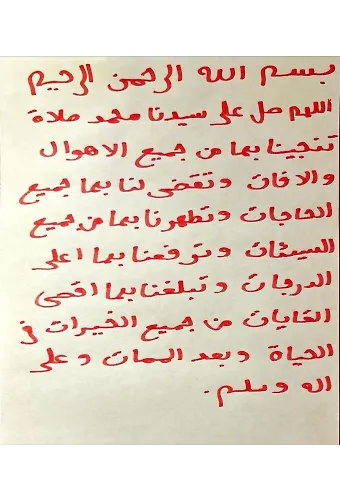 بسم الله الرحمن الرحيم
اللهم صل على سيدنا محمد صلاة
تنجينا بها من جميع الاهوال
والافات وتقضى لنا بها جميع
الحاجات وتطهرنا بها من جميع
السيئات وترفعنا بها اعلى
الدرجات وتبلغنا بها اقصى
الغايات من جميع الخيرات في
الحياة وبعد الممات وعلى
اله وسلم.